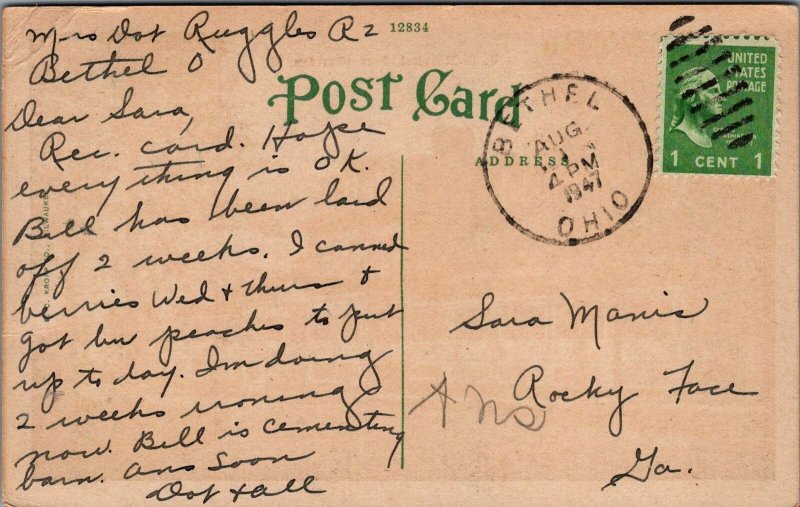 Mrs Dot Ruggles R2
Bethel O
12834
POST CARD
ADDRESS
Dear Sara,
Rec. card. Hope
everything is O K.
Bill has been laid
off 2 weeks. I canned
berries Wed + thurs +
got bu peaches to put
up to day. Im doing
2 weeks ironing
now. Bill is cementing
barn. Ans Soon
Dot + all
BETHEL
AUG
4 PM
1947
OHIO
UNITED
STATES
POSTAGE
1 CENT 1
Sara Manis
Rocky Face
Ga.
Ans